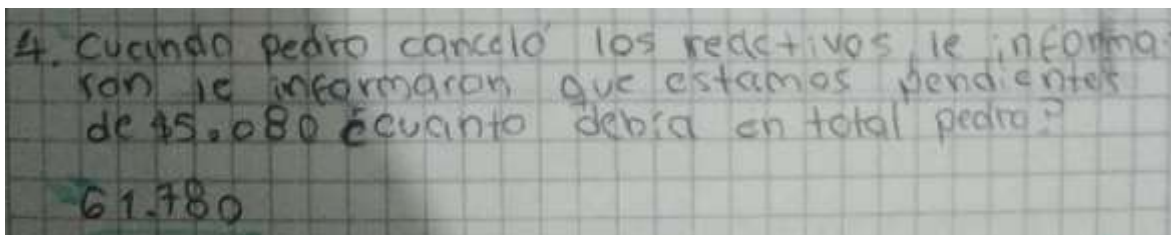 4. Cuando pedro canceló los reactivos le informa
ron le informaron que estamos pendientes
de 45.080 ¿cuanto debia en total pedro?
61.780